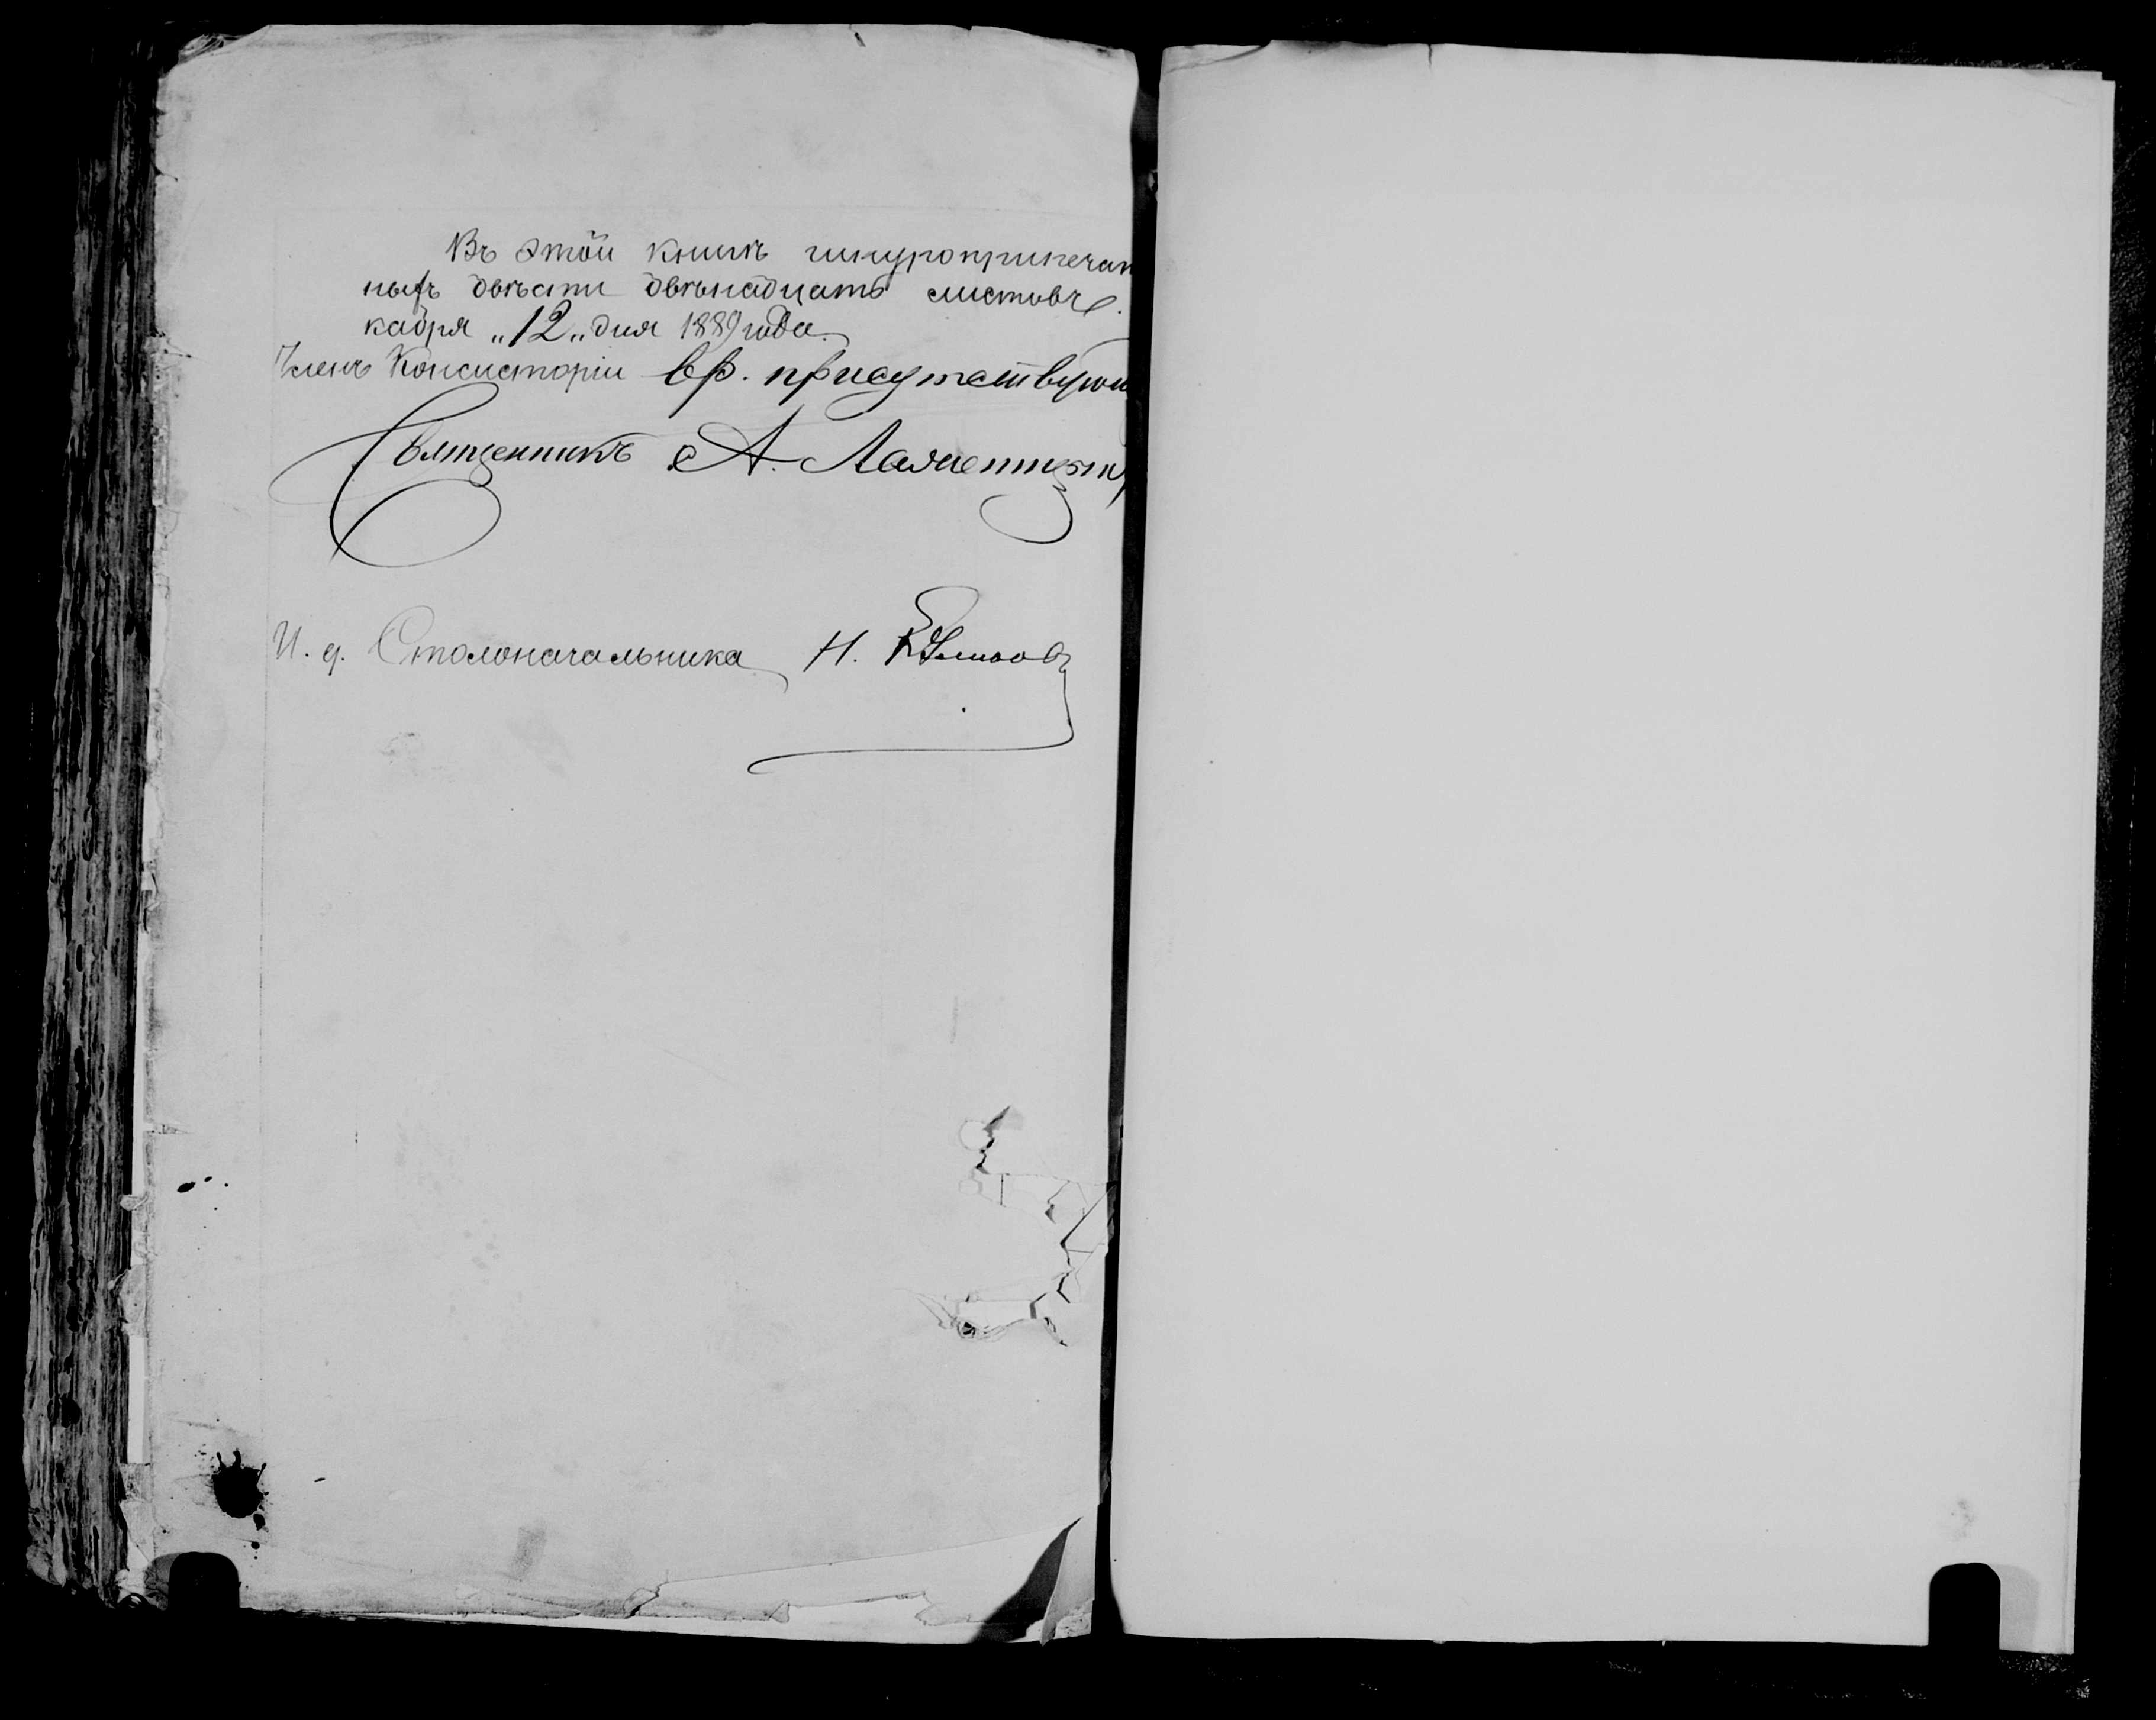 Въ этой книгѣ шнуроприпечат
ныхъ двѣсти двѣнадцать листовъ.
кабря „12„ дня 1889 года.
Членъ Консисторіи вр. присутствующ
Священникъ А.
И. д. Столоначальника Н.